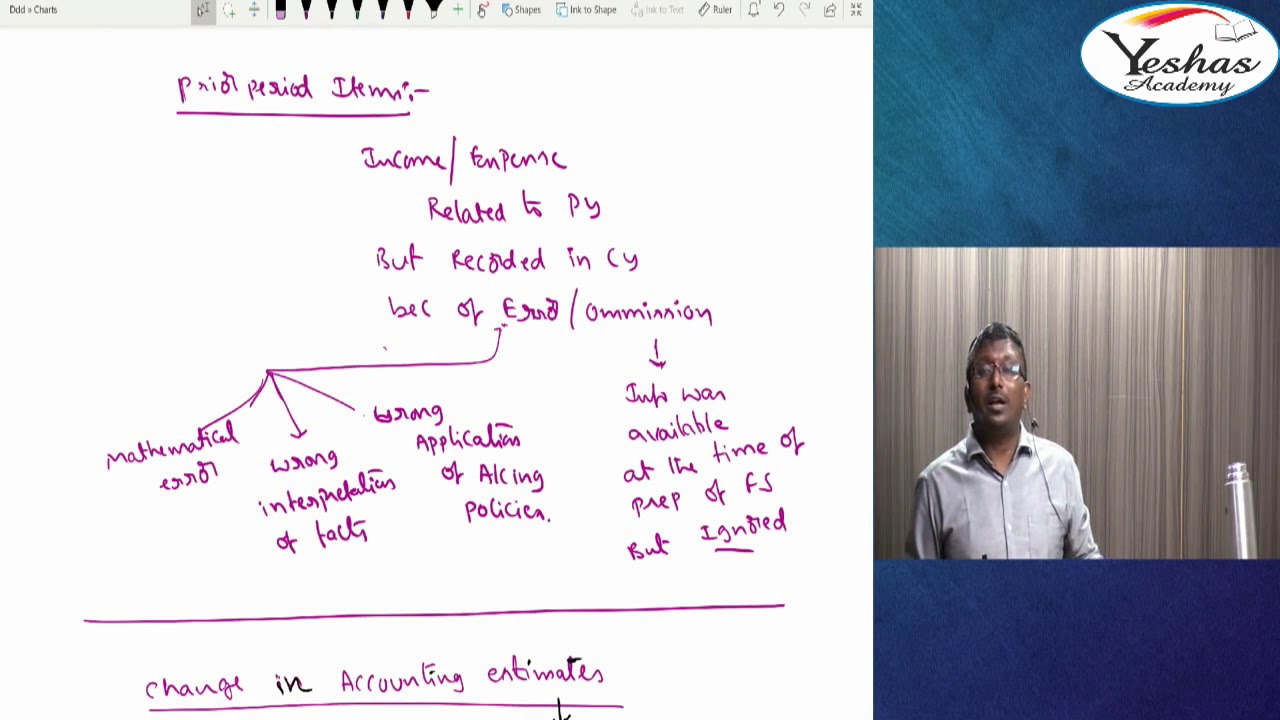 Ddd » Charts
Shapes
Ink to Shape
Ink to Text
Ruler
Yeshas
Academy
Prior period Items:-
Income/Expense
Related to PY
But Recorded in CY
bec of Error/Ommission
Mathematical
error
wrong
interpretation
of facts
wrong
Application
of A/cing
policies.
Info was
available
at the time of
prep of FS
But Ignored
Change in Accounting estimates